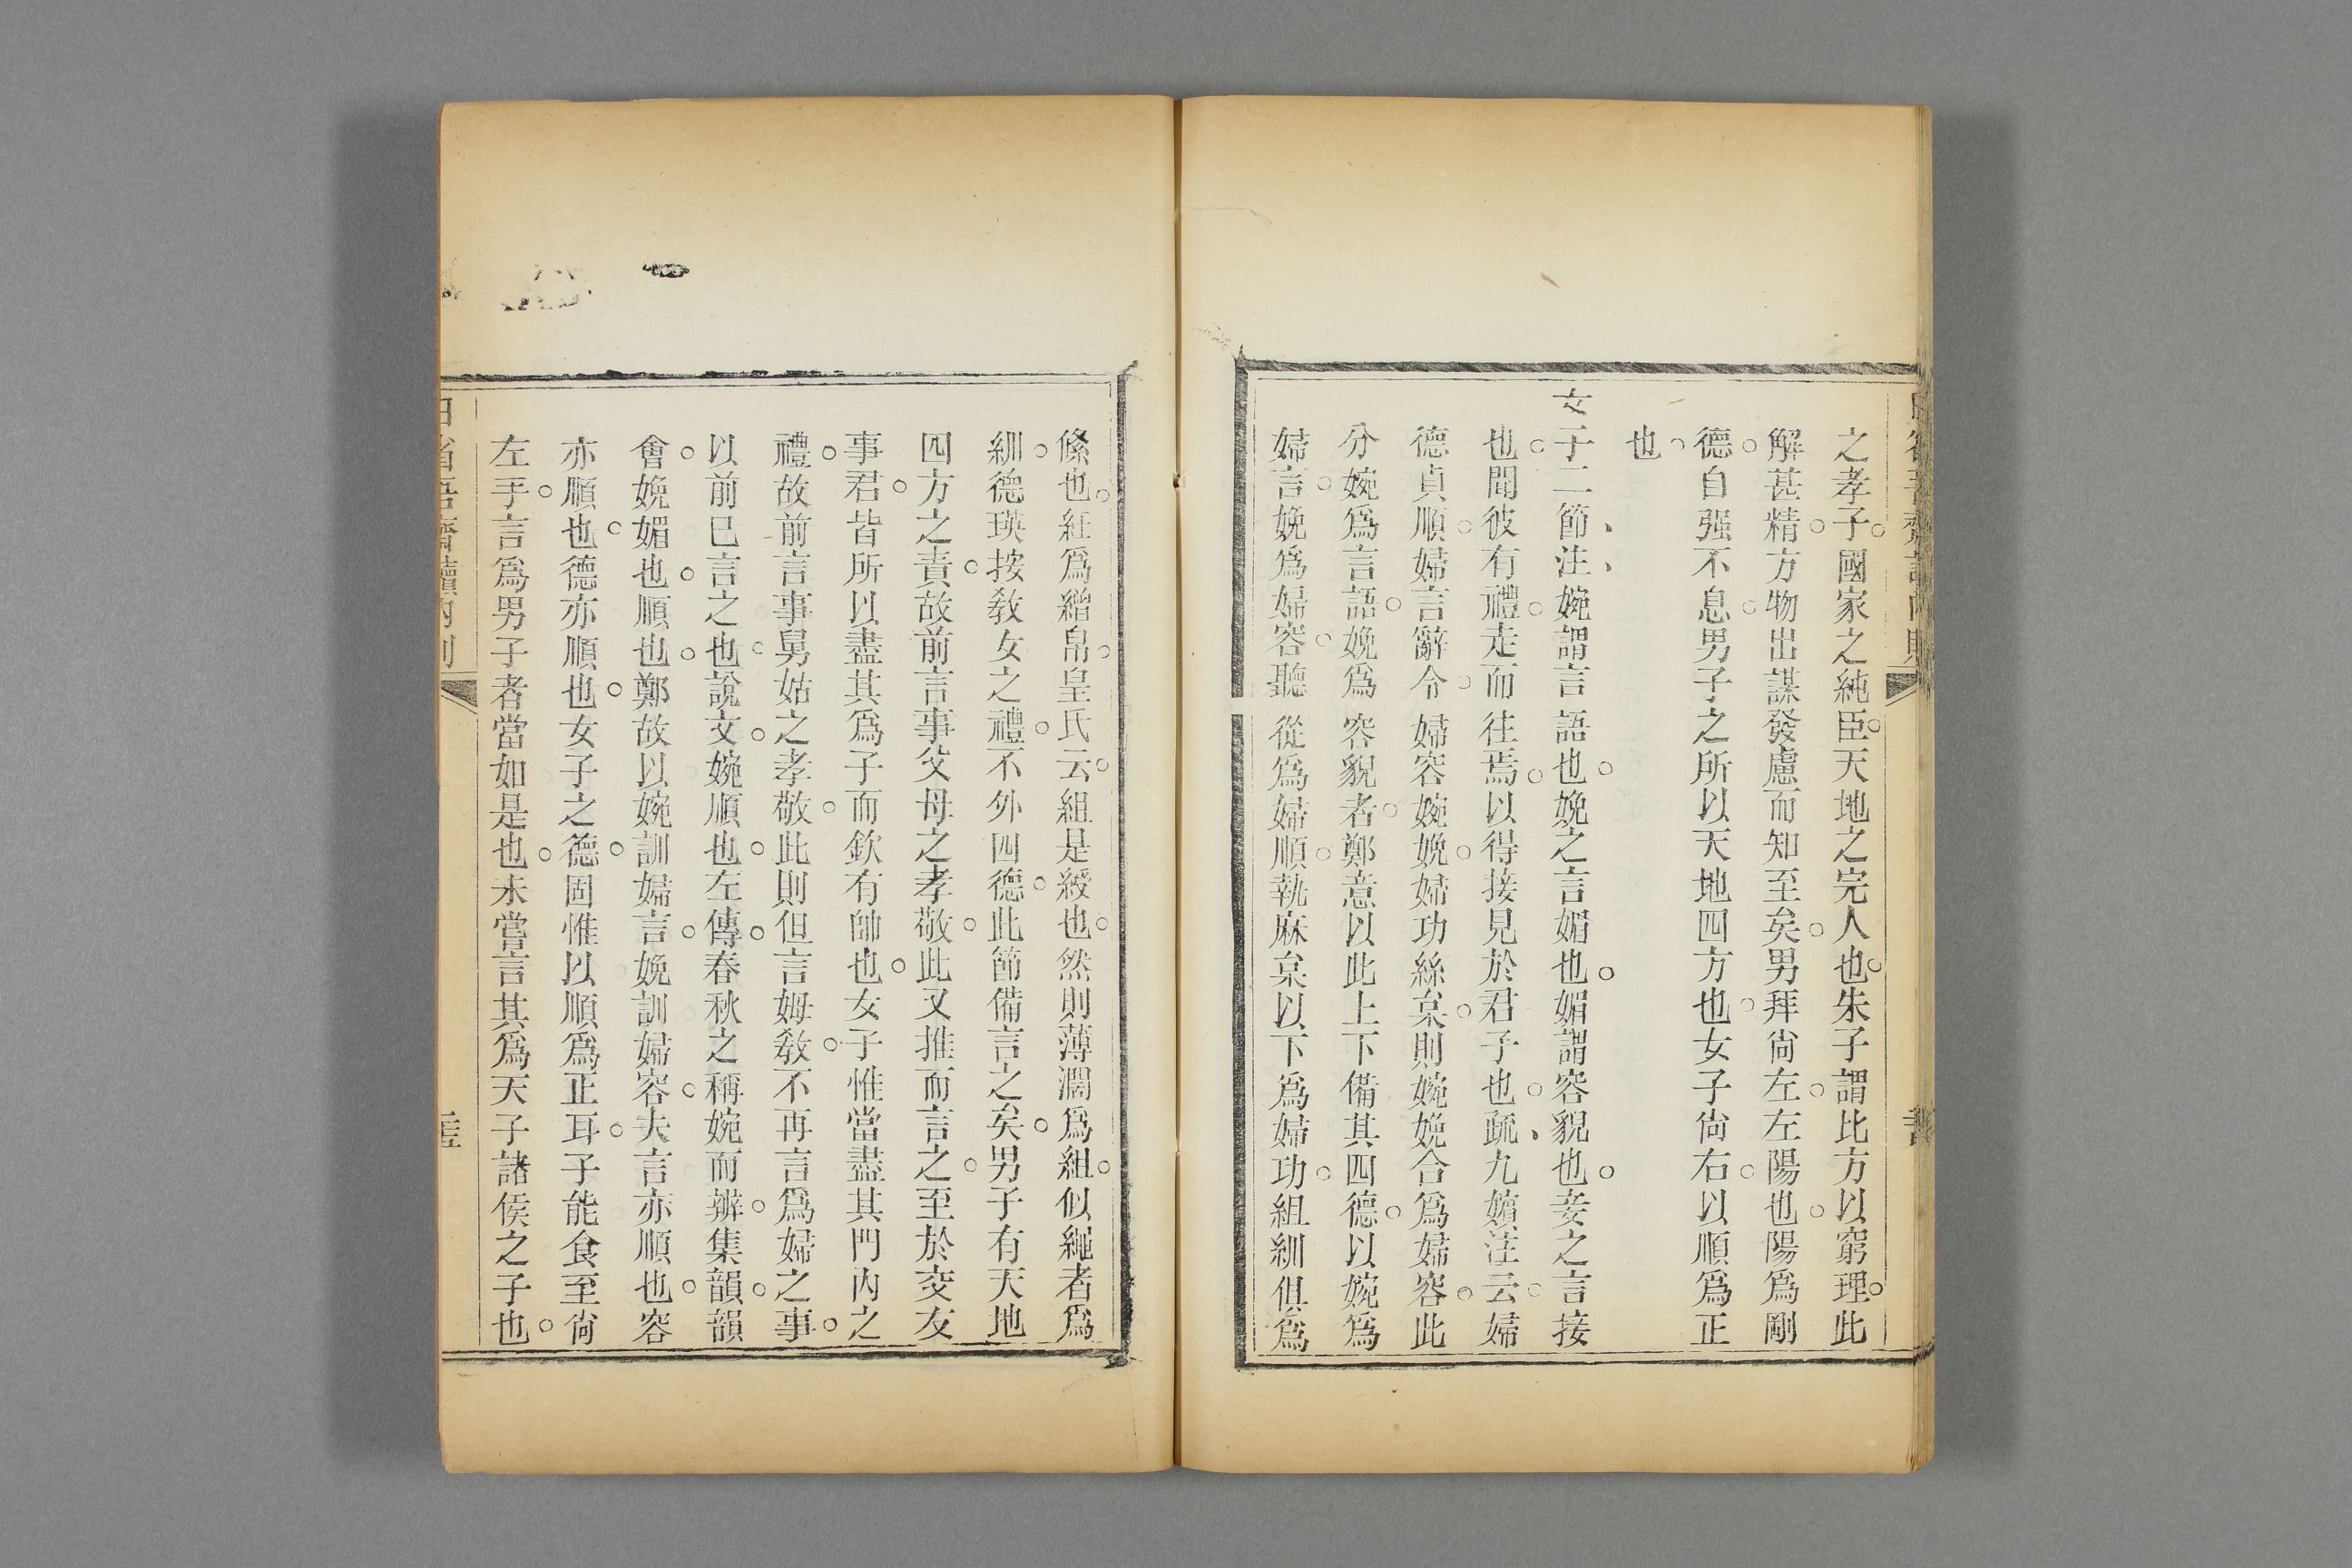 之孝子國家之純臣天地之完人也朱子謂比方以窮理此
解甚精方物出謀發慮而知至矣男拜尙左左陽也陽爲剛
德自强不息男子之所以天地四方也女子尙右以順爲正
也
女子二節注婉謂言語也娩之言媚也媚謂容貌也妾之言接
也聞彼有禮走而往焉以得接見於君子也疏九嬪注云婦
德貞順婦言辭令婦容婉娩婦功絲枲則婉娩合爲婦容此
分婉爲言語娩爲容貌者鄭意以此上下備其四德以婉爲
婦言娩爲婦容聽從爲婦順執麻枲以下爲婦功組紃俱爲
絛也紝爲繒帛皇氏云組是綬也然則薄濶爲組似繩者爲
紃德瑛按敎女之禮不外四德此節備言之矣男子有天地
四方之責故前言事父母之孝敬此又推而言之至於交友
事君皆所以盡其爲子而欽有帥也女子惟當盡其門內之
禮故前言事舅姑之孝敬此則但言姆敎不再言爲婦之事
以前已言之也說文婉順也左傳春秋之稱婉而辨集韻韻
會娩媚也順也鄭故以婉訓婦言娩訓婦容夫言亦順也容
亦順也德亦順也女子之德固惟以順爲正耳子能食至尙
左手言爲男子者當如是也未嘗言其爲天子諸侯之子也